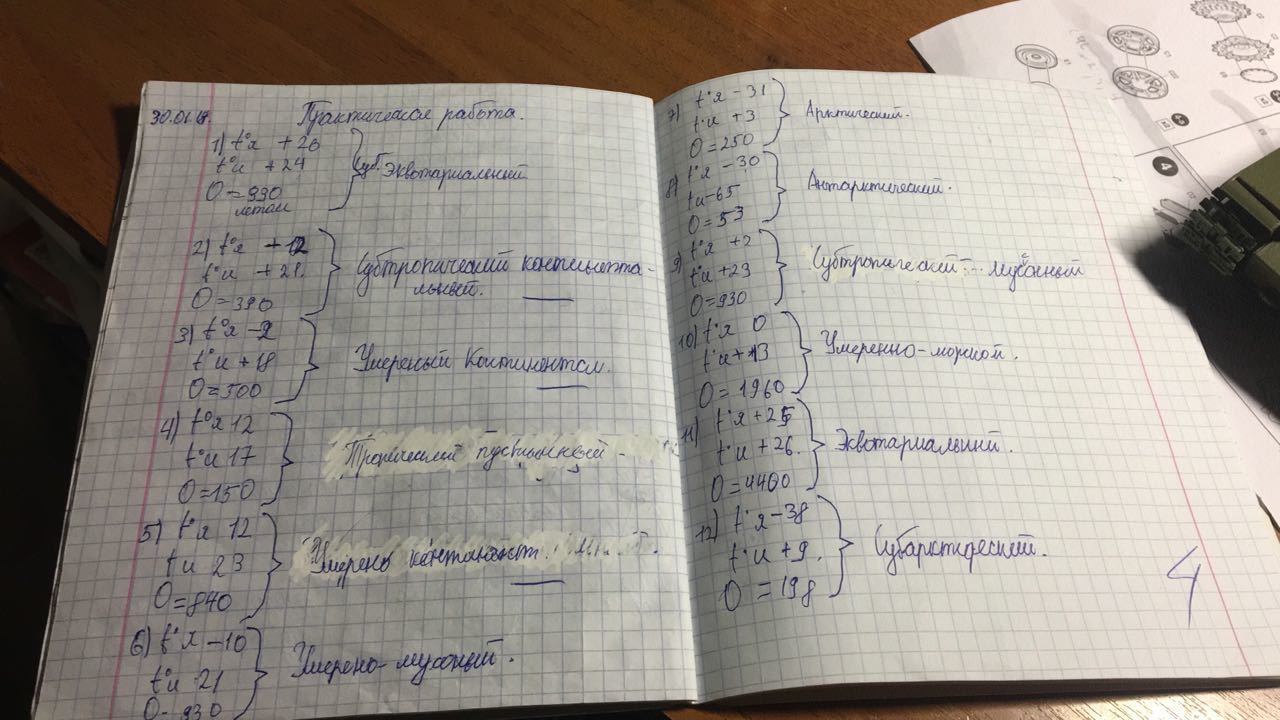 30.01
Практическая работа.
1) t°я +26
t°и +24
О=930
летом
Суб. Экваториальный
2) t°я +12
t°и +21
О=390
Субтропический континента-
льный.
3) t°я -2
t°и +18
О=500
Умереный Континентал.
4) t°я 12
t°и 17
О=150
Тропический пустынный -
5) t°я 12
tи 23
О=840
Умерено континент.
6) t°я -10
t°и 21
О=930
Умерено-мусоный.
7) t°я -31
t°и +3
О=250
Арктический.
8) t°я -30
tи -65
О=53
Антарктический.
9) t°я +2
t°и +23
О=930
Субтропический - мусонный
10) t°я 0
t°и +13
О=1960
Умеренно-морской.
11) t°я +25
t°и +26.
О=4400
Экваториальный.
12) t°я -38
t°и +9.
О=198
Субарктический.
4
4